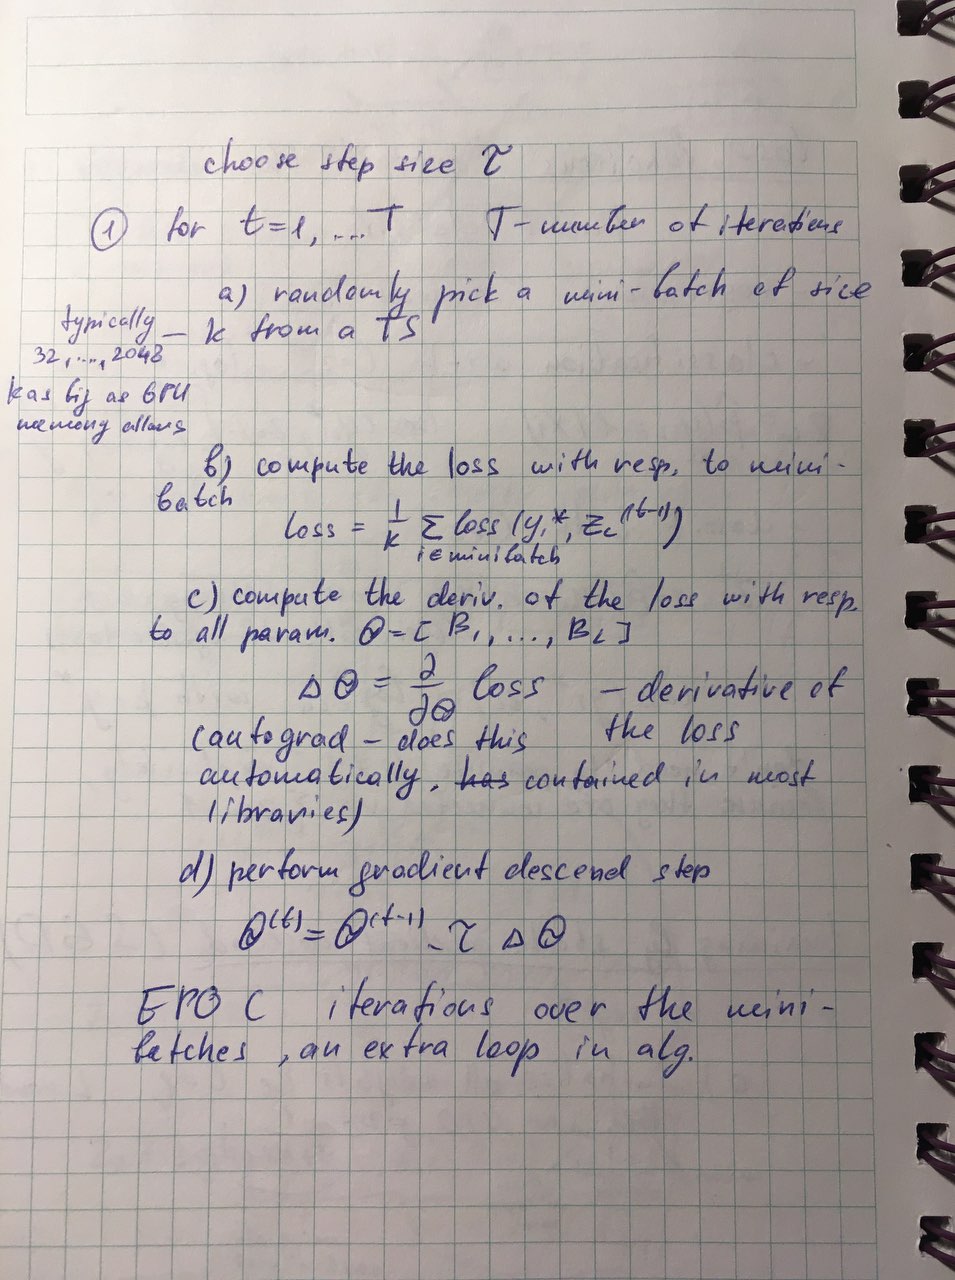 choose step size τ
① for t=1, ... T T - number of iterations
a) randomly pick a mini-batch of size
typically — k from a TS
32, ..., 2048
k as big as GPU
memory allows
b) compute the loss with resp. to mini-
batch
loss = 1/k Σ loss (yᵢ*, z_L^(t-1))
i ∈ minibatch
c) compute the deriv. of the loss with resp.
to all param. Θ = [B₁, ..., B_L]
ΔΘ = ∂/∂Θ loss — derivative of
the loss
(autograd - does this
automatically, has contained in most
libraries)
d) perform gradient descend step
Θ^(t) = Θ^(t-1) - τ ΔΘ
EPOC iterations over the mini-
batches, an extra loop in alg.